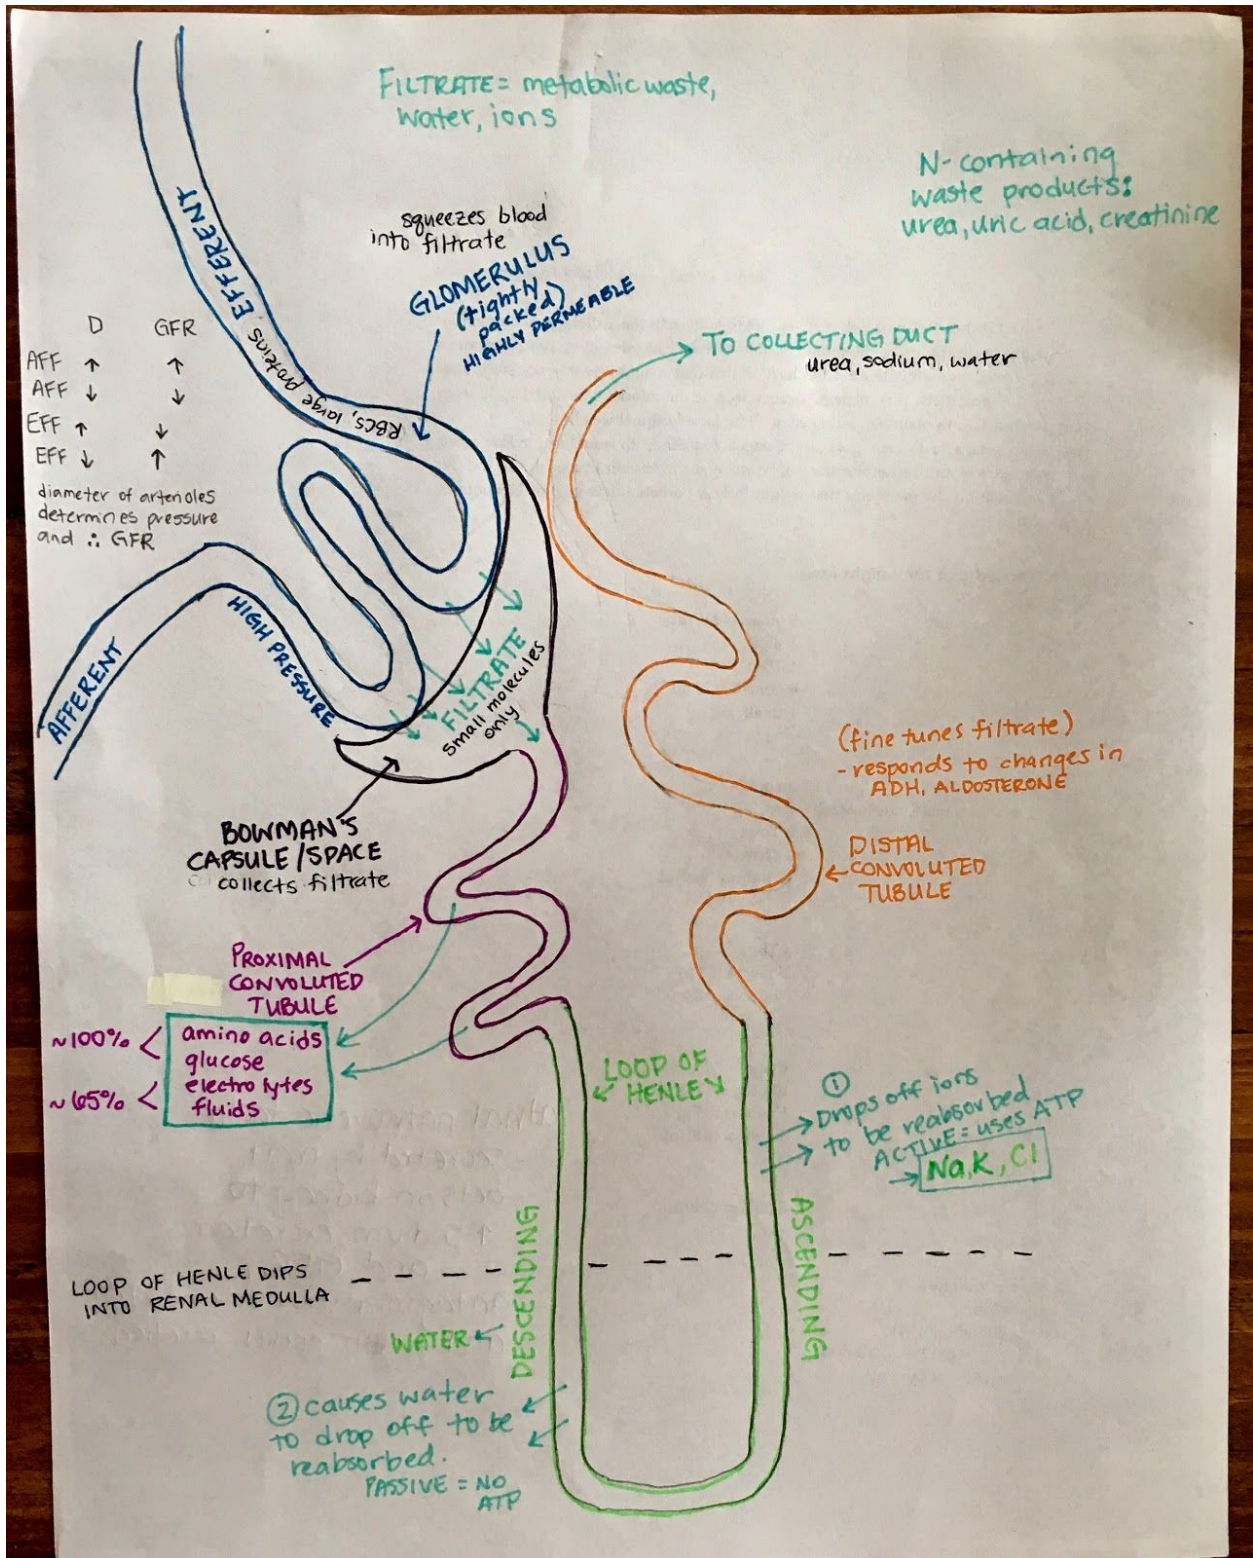 FILTRATE = metabolic waste,
water, ions
N-containing
waste products:
urea, uric acid, creatinine
squeezes blood
into filtrate
GLOMERULUS
(tightly
packed)
HIGHLY PERMEABLE
EFFERENT
RBCs, large proteins
D GFR
AFF ↑ ↑
AFF ↓ ↓
EFF ↑ ↓
EFF ↓ ↑
diameter of arterioles
determines pressure
and ∴ GFR
TO COLLECTING DUCT
urea, sodium, water
AFFERENT
HIGH PRESSURE
FILTRATE
small molecules
only
BOWMAN'S
CAPSULE/SPACE
collects filtrate
(fine tunes filtrate)
- responds to changes in
ADH, ALDOSTERONE
DISTAL
CONVOLUTED
TUBULE
PROXIMAL
CONVOLUTED
TUBULE
~100% < amino acids
glucose
~65% < electrolytes
fluids
LOOP OF
HENLE
①
Drops off ions
to be reabsorbed
ACTIVE = uses ATP
Na, K, Cl
DESCENDING
ASCENDING
LOOP OF HENLE DIPS
INTO RENAL MEDULLA
WATER
② causes water
to drop off to be
reabsorbed.
PASSIVE = NO
ATP